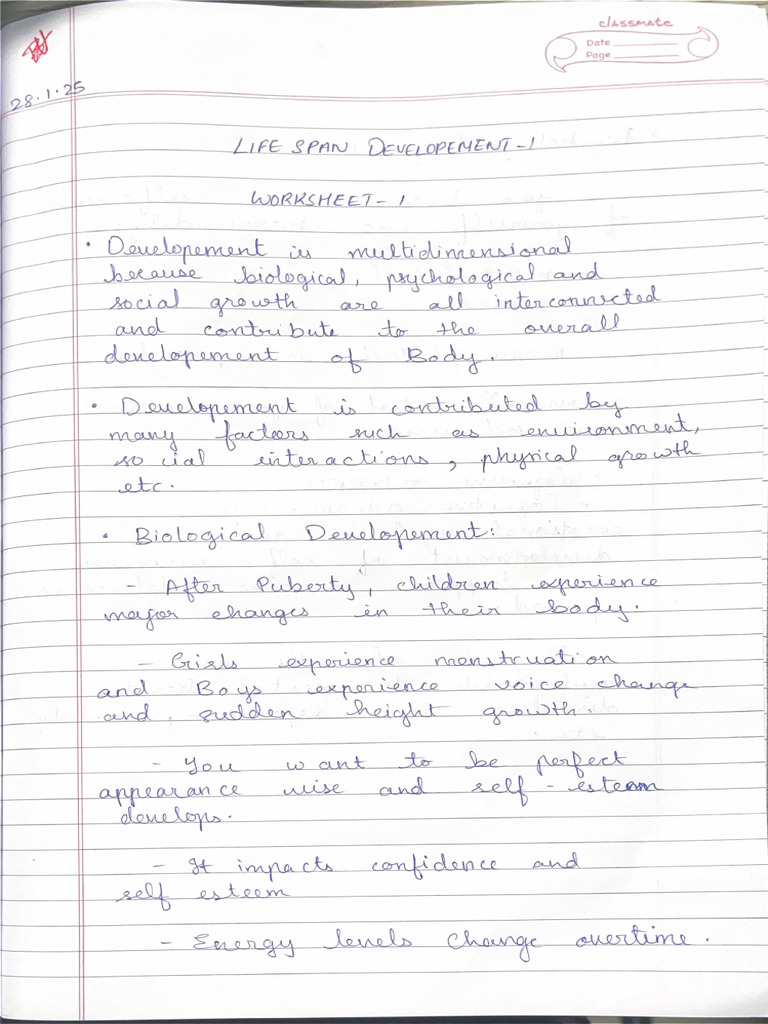 classmate
Date
Page
28.1.25
LIFE SPAN DEVELOPEMENT-1
WORKSHEET-1
• Developement is multidimensional
because biological, psychological and
social growth are all interconnected
and contribute to the overall
developement of Body.
• Developement is contributed by
many factors such as environment,
social interactions, physical growth
etc.
• Biological Developement:
- After Puberty, children experience
major changes in their body.
- Girls experience menstruation
and Boys experience voice change
and sudden height growth.
- You want to be perfect
appearance wise and self-esteem
develops.
- It impacts confidence and
self esteem
- Energy levels change overtime.